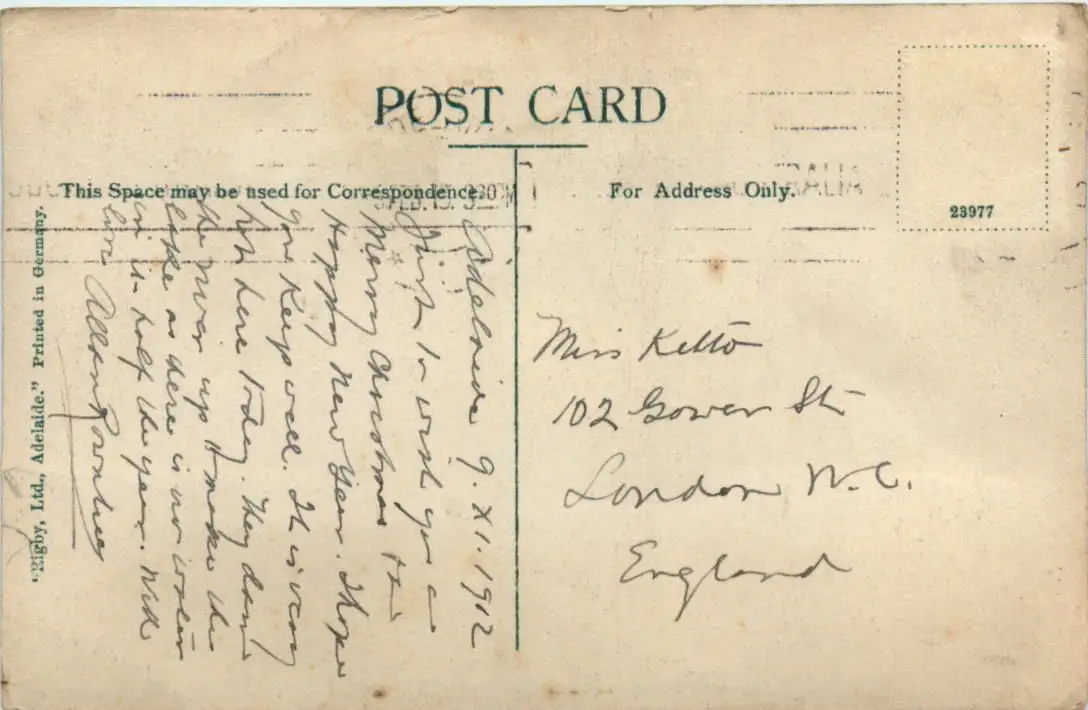 POST CARD
This Space may be used for Correspondence.
For Address Only.
23977
"Rigby, Ltd., Adelaide." Printed in Germany.
Adelaide 9. XI. 1912
Just to wish you a
Merry Christmas &
Happy New Year. I hope
you keep well. It is very
hot here today. They dam
the river up & make the
lake as there is no water
in it half the year. With
love Allan
Miss Kitto
102 Gower St
London W.C.
England